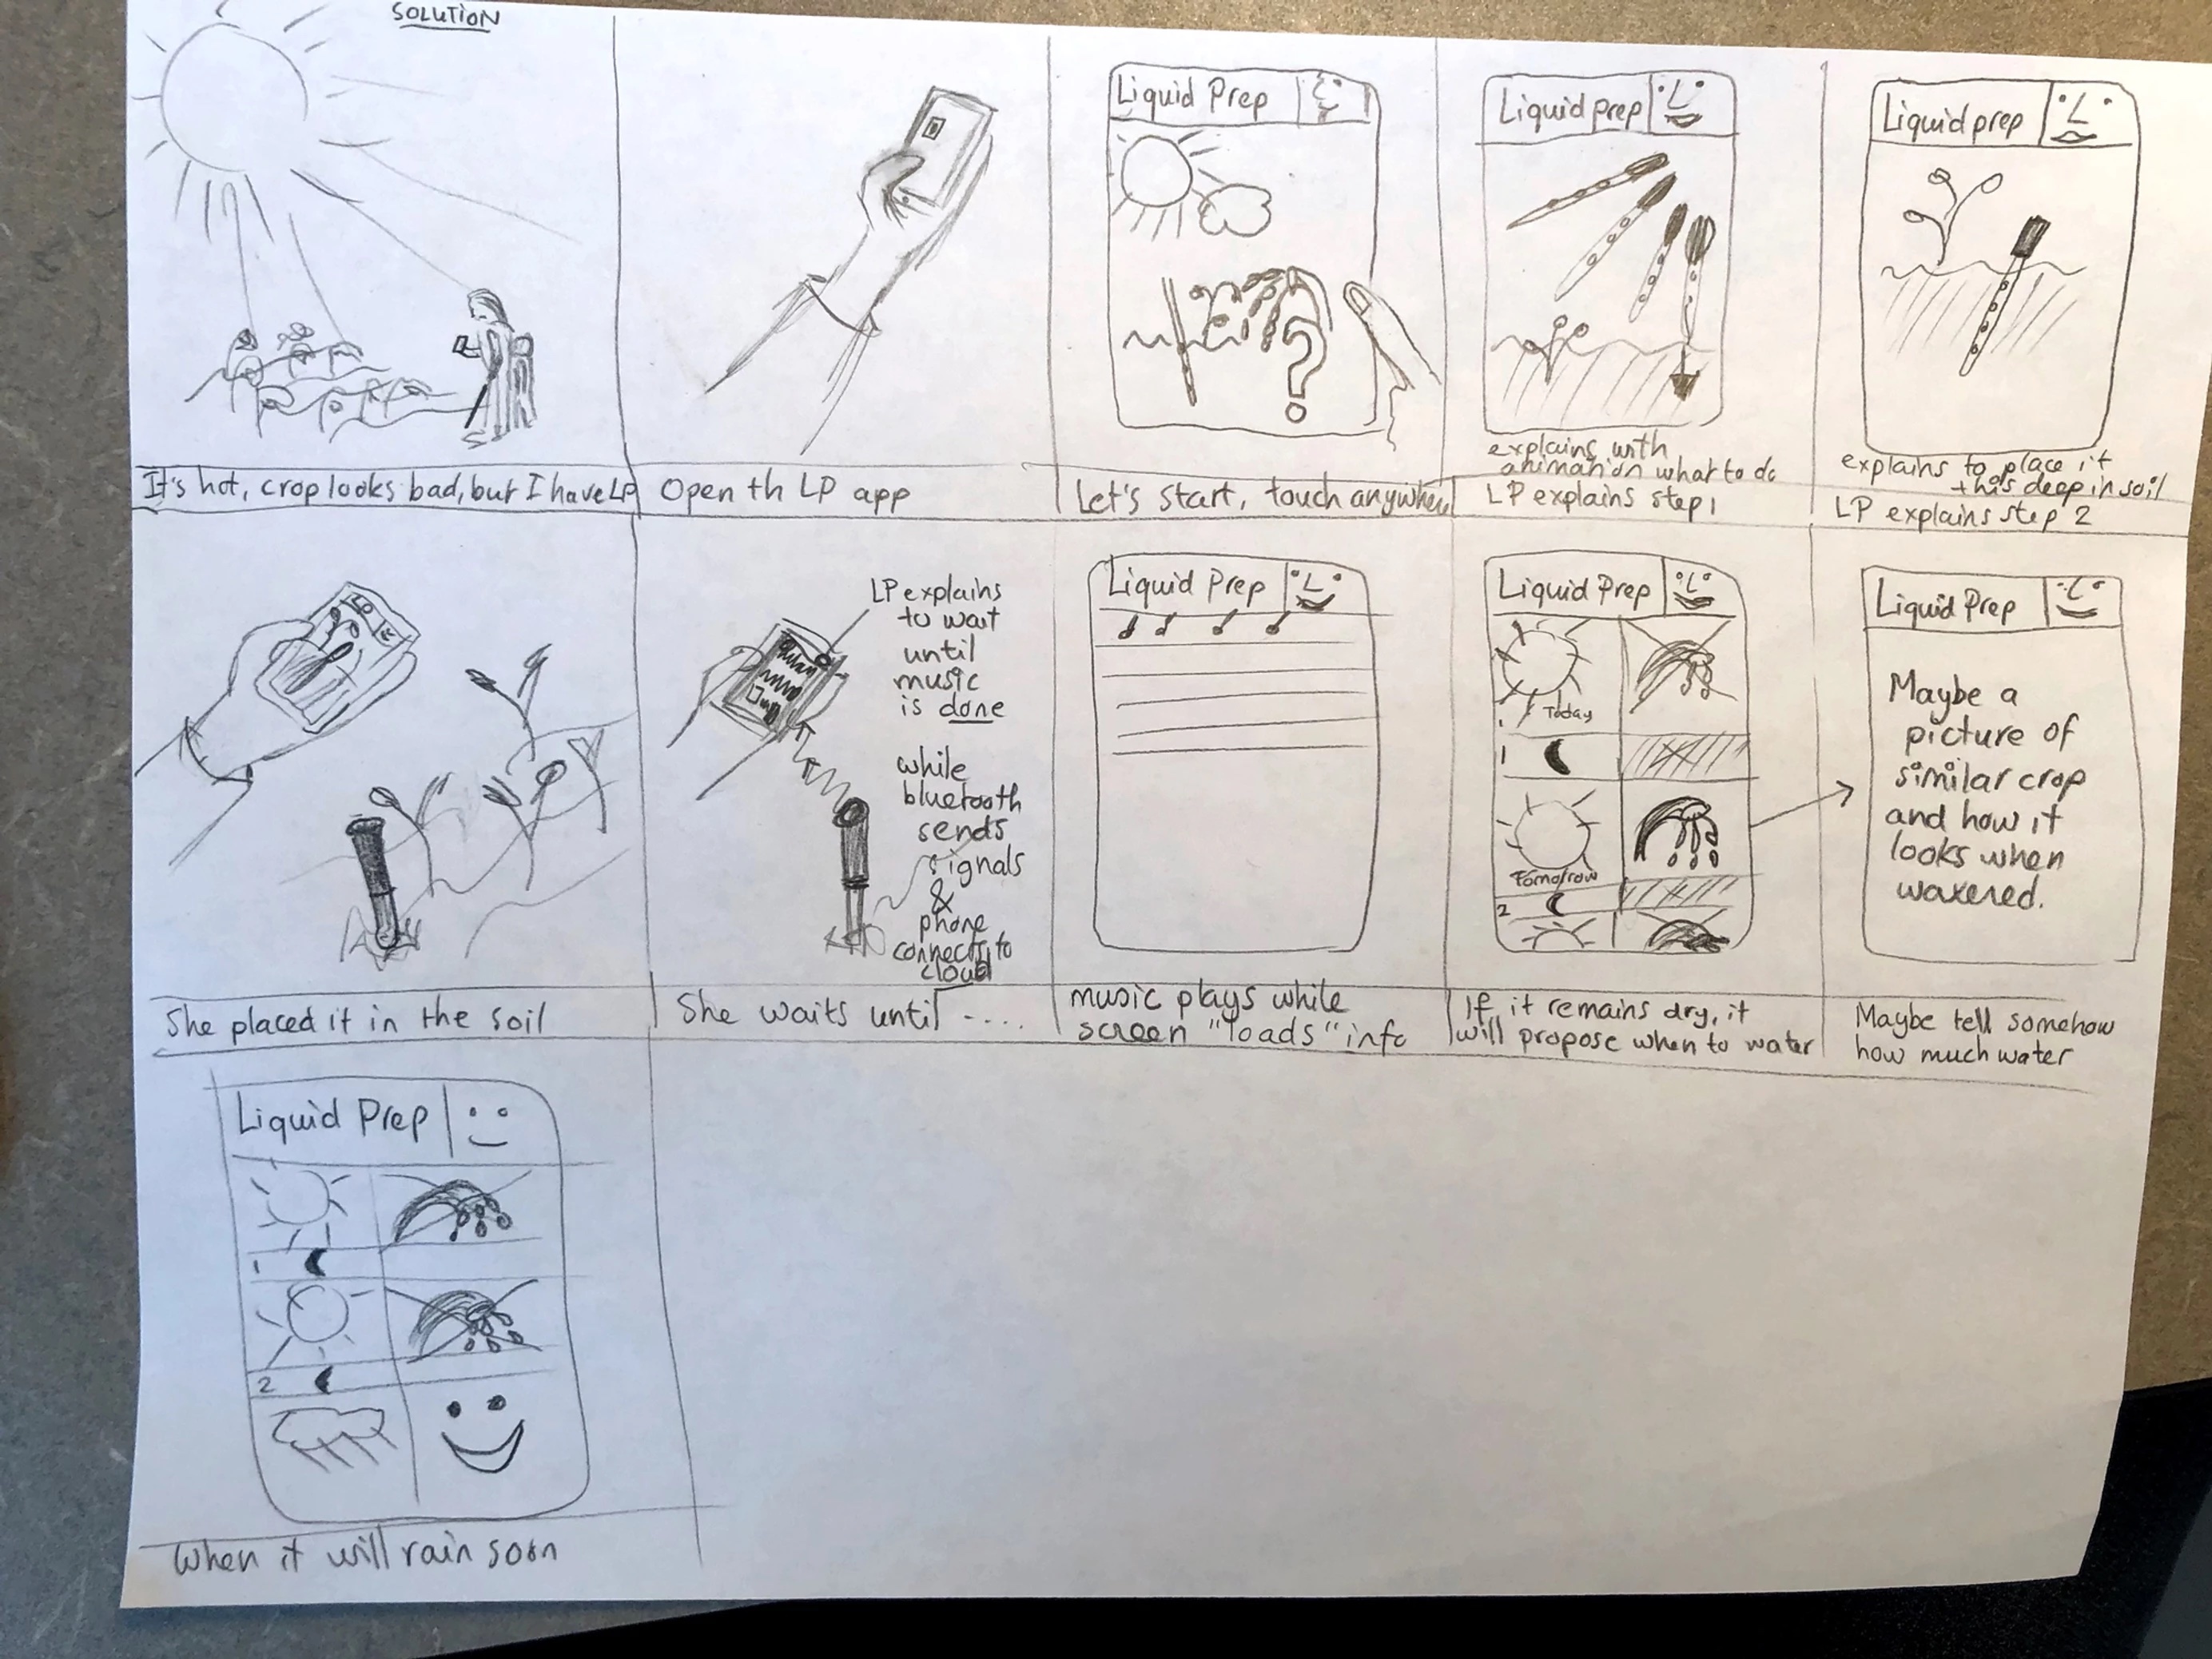 SOLUTION
It's hot, crop looks bad, but I have LP
Open th LP app
Liquid Prep
?
Let's start, touch anywhere
Liquid prep
explains with
animation what to do
LP explains step 1
Liquid prep
explains to place it
this deep in soil
LP explains step 2
She placed it in the soil
LP explains
to wait
until
music
is done
while
bluetooth
sends
signals
&
phone
connects to
cloud
She waits until ....
Liquid Prep
music plays while
screen "loads" info
Liquid Prep
Today
1
Tomorrow
2
If it remains dry, it
will propose when to water
Liquid Prep
Maybe a
picture of
similar crop
and how it
looks when
waxered.
Maybe tell somehow
how much water
Liquid Prep
1
2
When it will rain soon